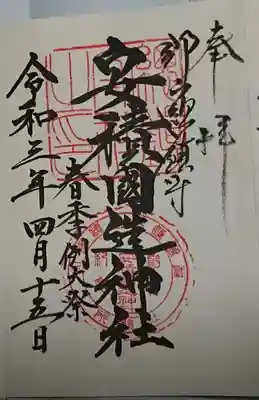 奉拝
郡山總鎮守
安積國造神社
春季例大祭
令和三年四月十五日